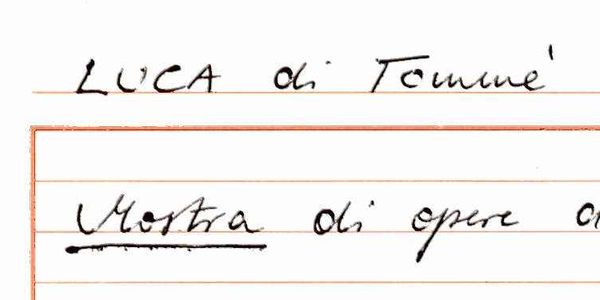 LUCA di Tommè
Mostra di opere